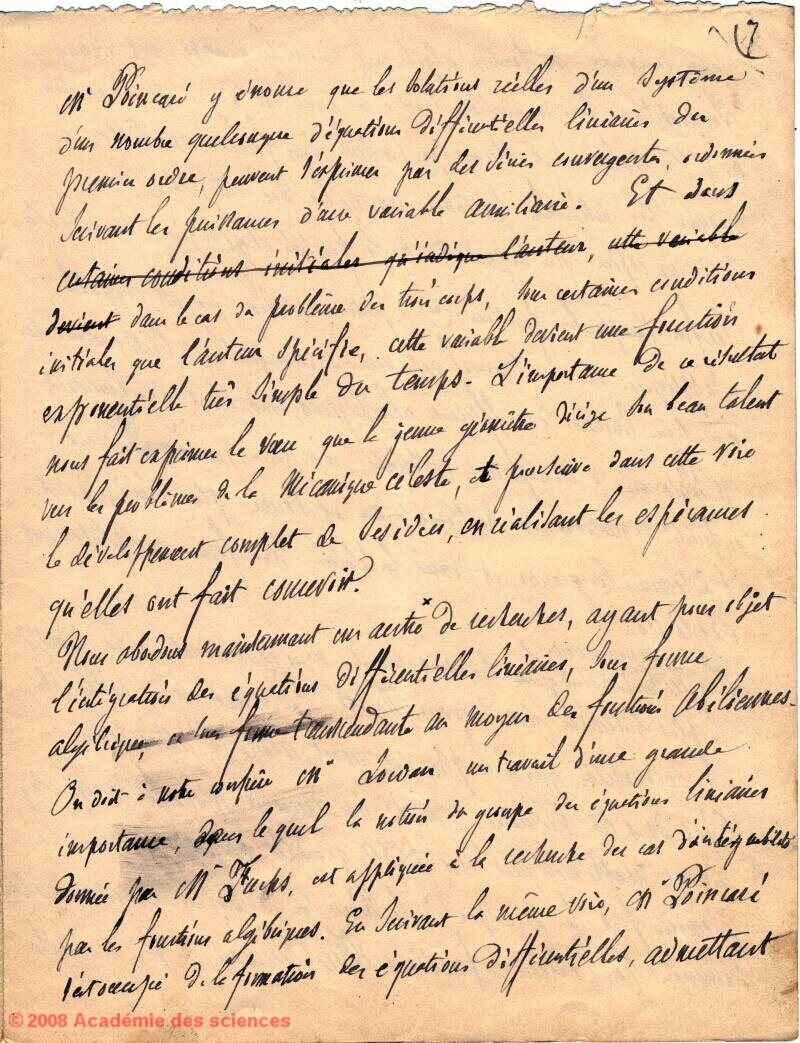 7
Mr Poincaré y énonce que les solutions réelles d'un système
d'un nombre quelconque d'équations différentielles linéaires du
premier ordre, peuvent s'exprimer par des séries convergentes, ordonnées
suivant les puissances d'une variable auxiliaire. Et dans
certaines conditions initiales qu'indique l'auteur, cette variable
devient dans le cas du problème des trois corps, sous certaines conditions
initiales que l'auteur spécifie, cette variable devient une fonction
exponentielle très simple du temps. L'importance de ce résultat
nous fait exprimer le vœu que le jeune géomètre dirige son beau talent
vers les problèmes de la Mécanique Céleste, et poursuive dans cette voie
le développement complet de ses idées, en réalisant les espérances
qu'elles ont fait concevoir.
Nous abordons maintenant un autre x de recherches, ayant pour objet
l'intégration des équations différentielles linéaires, sous forme
algébrique, ou sous forme transcendante au moyen des fonctions Abéliennes.
On doit à notre confrère Mr Jordan un travail d'une grande
importance, dans lequel la notion du groupe des équations linéaires
donnée par Mr Fuchs, est appliquée à la recherche des cas d'intégrabilité
par les fonctions algébriques. En suivant la même voie, Mr Poincaré
s'est occupé de la formation des équations différentielles, admettant
© 2008 Académie des sciences